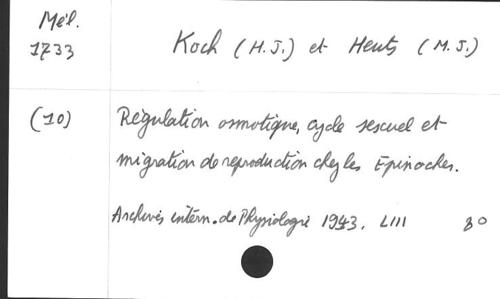 Mél.
1733
Koch (H.J.) et Heuts (M.J.)
(10)
Régulation osmotique, cycle sexuel et
migration de reproduction chez les Epinoches.
Archives intern. de Physiologie 1943. LIII 8°